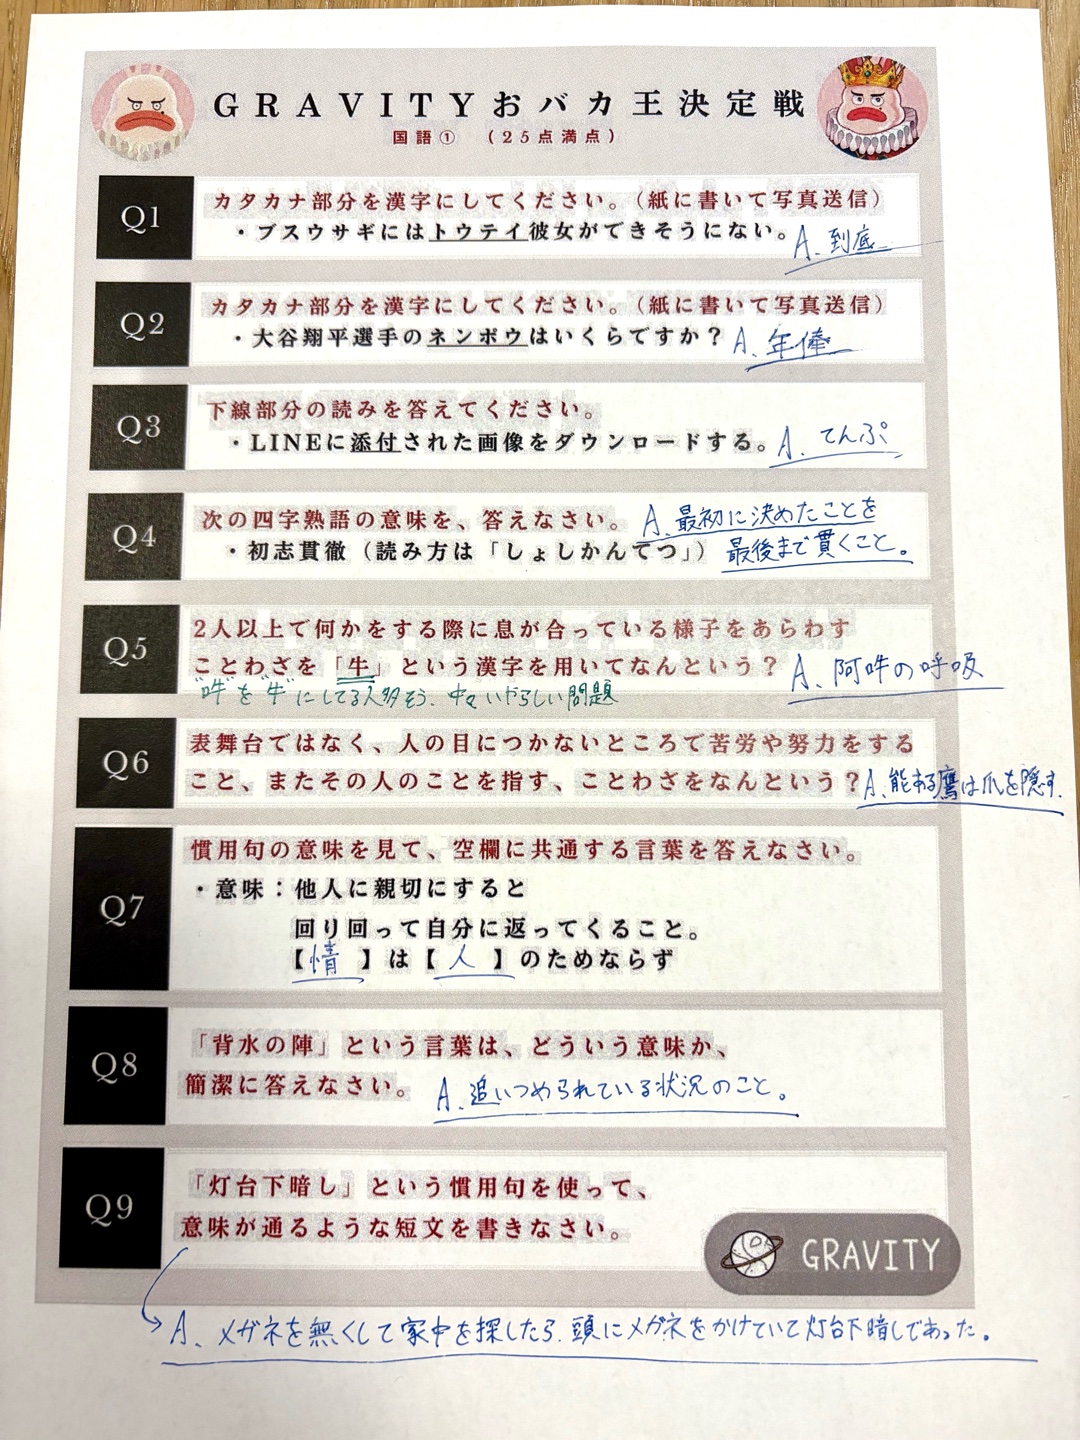 GRAVITYおバカ王決定戦
国語① (25点満点)
Q1
カタカナ部分を漢字にしてください。(紙に書いて写真送信)
・ブスウサギにはトウテイ彼女ができそうにない。
A. 到底
Q2
カタカナ部分を漢字にしてください。(紙に書いて写真送信)
・大谷翔平選手のネンボウはいくらですか?
A. 年俸
Q3
下線部分の読みを答えてください。
・LINEに添付された画像をダウンロードする。
A. てんぷ
Q4
次の四字熟語の意味を、答えなさい。
・初志貫徹(読み方は「しょしかんてつ」)
A. 最初に決めたことを
最後まで貫くこと。
Q5
2人以上で何かをする際に息が合っている様子をあらわす
ことわざを「牛」という漢字を用いてなんという?
A. 阿吽の呼吸
"吽"を"牛"にしてる人多そう. 中々いやらしい問題
Q6
表舞台ではなく、人の目につかないところで苦労や努力をする
こと、またその人のことを指す、ことわざをなんという?
A. 能ある鷹は爪を隠す.
Q7
慣用句の意味を見て、空欄に共通する言葉を答えなさい。
・意味:他人に親切にすると
回り回って自分に返ってくること。
【情】は【人】のためならず
Q8
「背水の陣」という言葉は、どういう意味か、
簡潔に答えなさい。
A. 追いつめられている状況のこと。
Q9
「灯台下暗し」という慣用句を使って、
意味が通るような短文を書きなさい。
GRAVITY
A. メガネを無くして家中を探したら、頭にメガネをかけていて灯台下暗しであった。